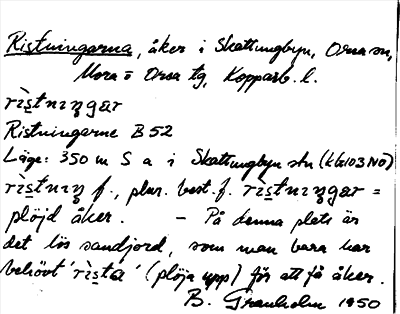 Ristningarna, åker i Skattungbyn, Orsa sn,
Mora o Orsa tg, Kopparb. l.
rìstnıŋgar
Ristningarne B 52
Läge: 350 m S a i Skattungbyn stn (kbl 103 NO)
rìstnıŋ f., plur. best. f. rìstnıŋgar =
plöjd åker. – På denna plats är
det lös sandjord, som man bara har
behövt 'rìsta' (plöja upp) för att få åker.
B. Granholm 1950